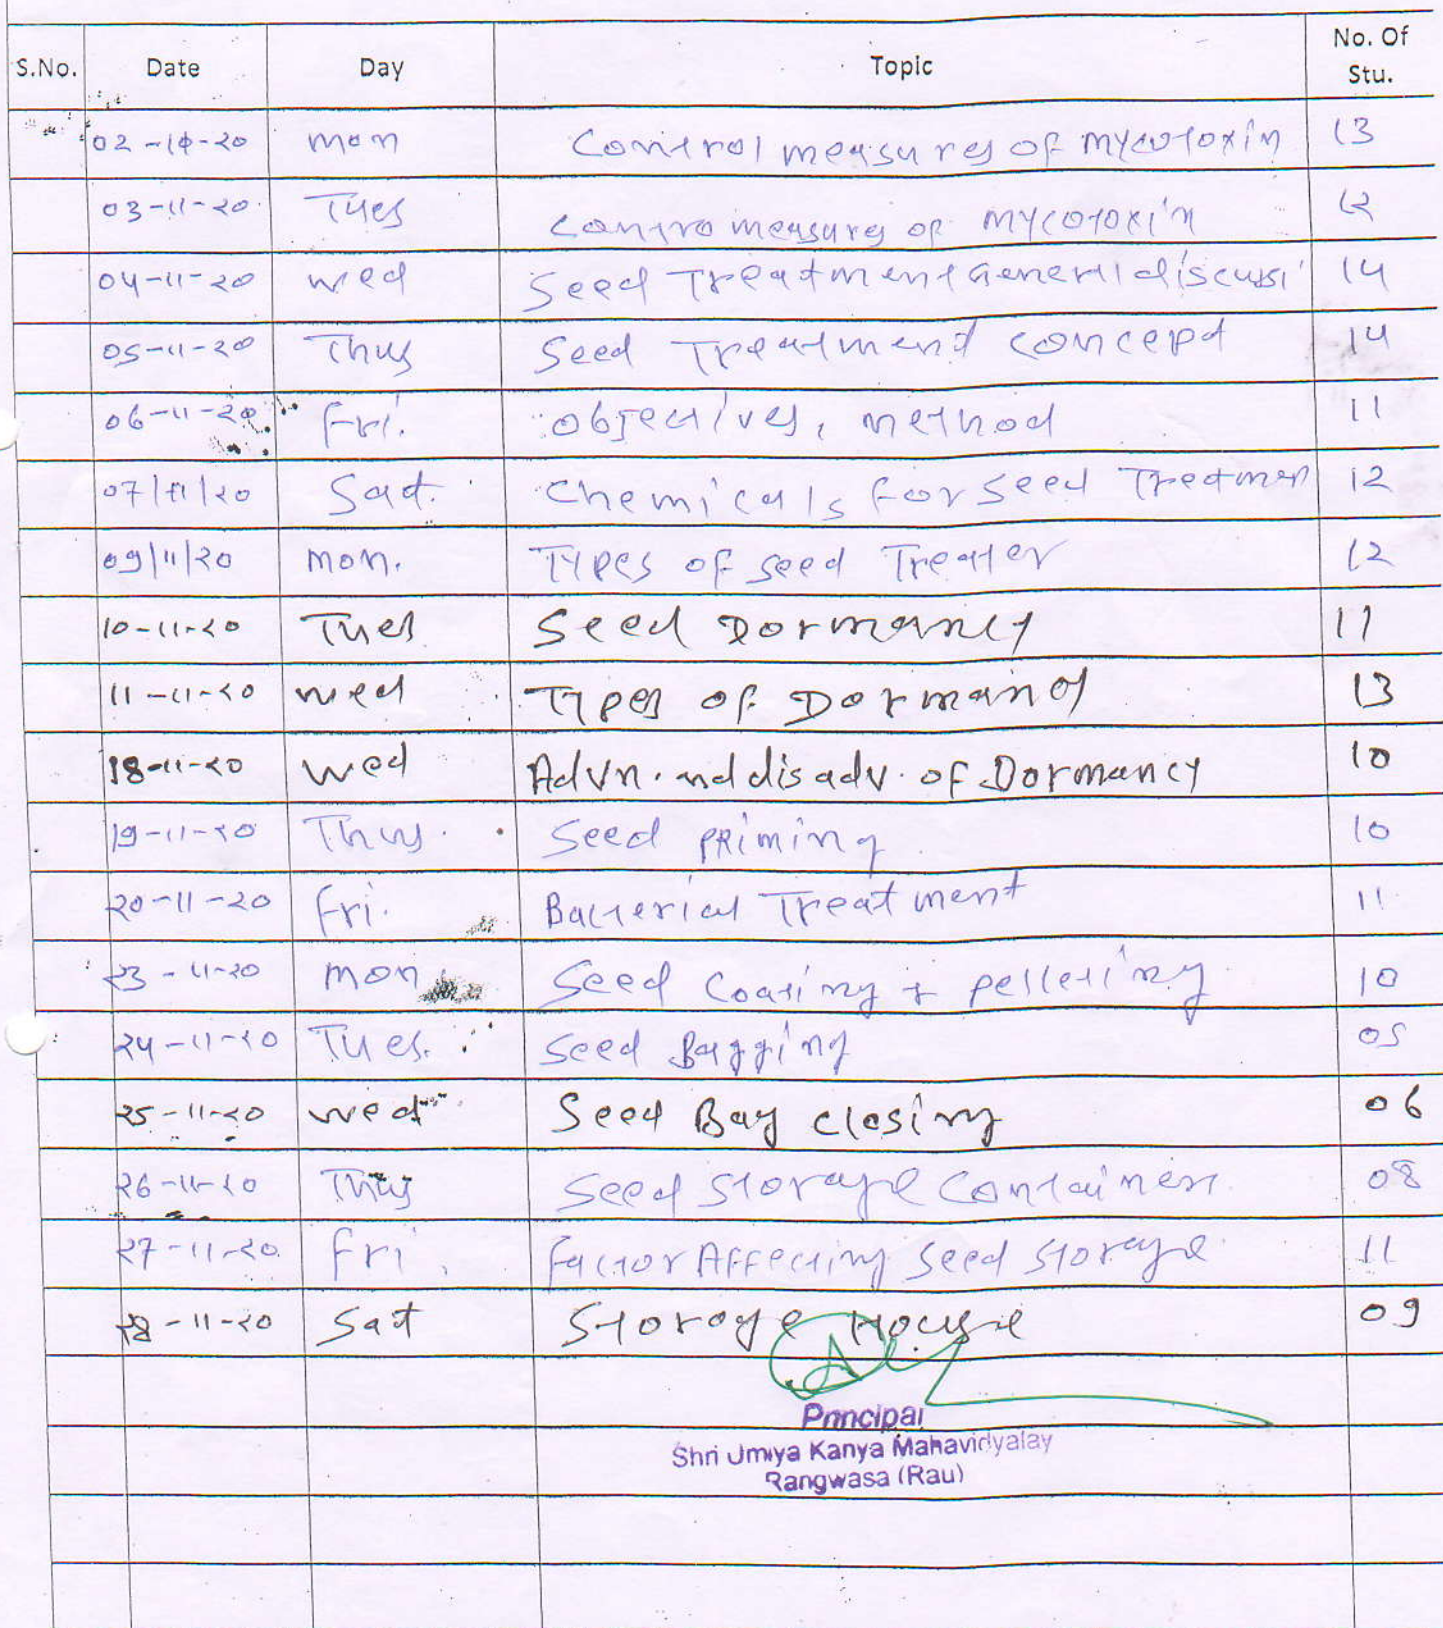 S.No. Date Day Topic No. Of Stu.
02-11-20 Mon Control measures of Mycotoxin 13
03-11-20 Tues Contro measures of Mycotoxin 12
04-11-20 Wed Seed Treatment General discussi 14
05-11-20 Thus Seed Treatment concept 14
06-11-20 Fri. objectives, method 11
07/11/20 Sat. Chemicals for seed Treatmen 12
09/11/20 Mon. Types of seed Treater 12
10-11-20 Tues Seed Dormancy 11
11-11-20 Wed Types of Dormancy 13
18-11-20 Wed Advn. and disadv. of Dormancy 10
19-11-20 Thus. Seed Priming 10
20-11-20 Fri. Bacterial Treatment 11
23-11-20 Mon Seed Coating & pelleting 10
24-11-20 Tues. Seed Bagging 05
25-11-20 Wed Seed Bag closing 06
26-11-20 Thus Seed Storage Container 08
27-11-20 Fri. Factor Affecting Seed Storage 11
28-11-20 Sat Storage House 09
Principal
Shri Umiya Kanya Mahavidyalay
Rangwasa (Rau)